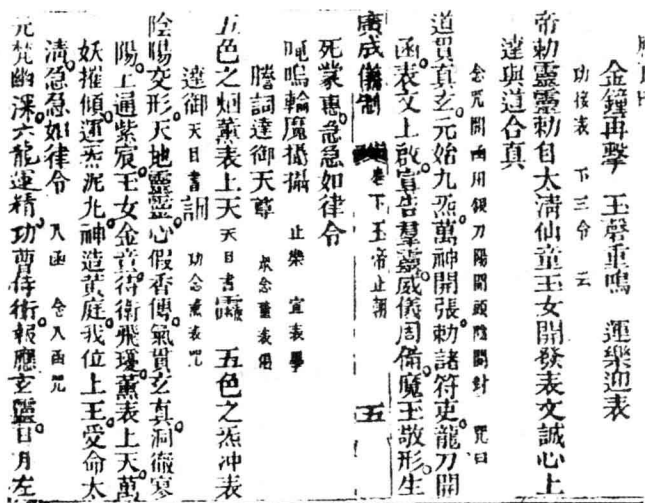 金鐘再擊　玉磬重鳴　運樂迎表
功接表　下三令　云
帝勅靈靈勅自太清仙童玉女開發表文誠心上
達與道合真
念咒開函用銀刀陽開頭陰開封　咒曰
道貫真玄元始九炁萬神開張勅諸符吏龍刀開
函表文上啟宣告羣靈威儀周備魔王敬形生
廣成儀制　卷下玉帝正朝　五
死蒙惠急急如律令
嗚輪魔攝　止樂　宣表畢
謄詞達御天尊　念薰表用
五色之烟薰表上天　天日書　五色之炁冲表
達御　天日書　功念薰表咒
陰陽交形天地靈靈心假香傳氣貫玄真洞徹寥
陽上通紫宸玉女金音待衛飛瓊薰表上天萬
妖摧傾運炁泥丸神造黃庭我位上王愛命太
清急急如律令　入函　念入函咒
元梵幽深六龍運精功曹侍衛報應玄靈日月左